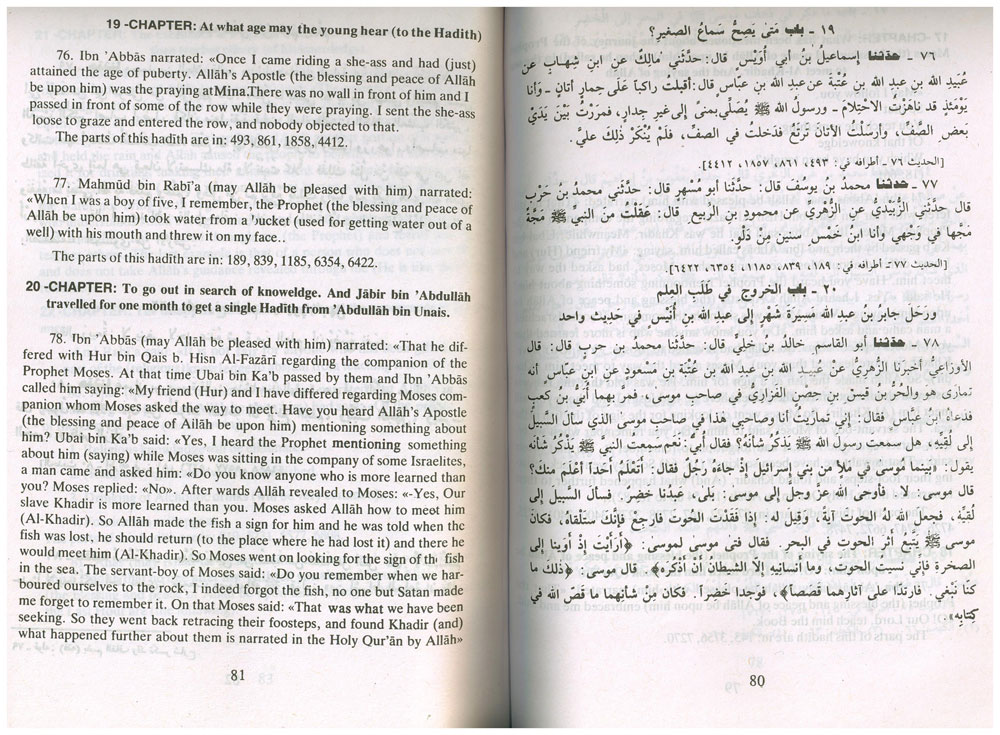 19 -CHAPTER: At what age may the young hear (to the Hadith)
76. Ibn 'Abbās narrated: «Once I came riding a she-ass and had (just)
attained the age of puberty. Allāh's Apostle (the blessing and peace of Allāh
be upon him) was the praying at Mina.There was no wall in front of him and I
passed in front of some of the row while they were praying. I sent the she-ass
loose to graze and entered the row, and nobody objected to that.
The parts of this hadīth are in: 493, 861, 1858, 4412.
77. Mahmūd bin Rabī'a (may Allāh be pleased with him) narrated:
«When I was a boy of five, I remember, the Prophet (the blessing and peace of
Allāh be upon him) took water from a 'ucket (used for getting water out of a
well) with his mouth and threw it on my face..
The parts of this hadīth are in: 189, 839, 1185, 6354, 6422.
20 -CHAPTER: To go out in search of knoweldge. And Jābir bin 'Abdullāh
travelled for one month to get a single Hadīth from 'Abdullāh bin Unais.
78. Ibn 'Abbās (may Allāh be pleased with him) narrated: «That he dif-
fered with Hur bin Qais b. Hisn Al-Fazārī regarding the companion of the
Prophet Moses. At that time Ubai bin Ka'b passed by them and Ibn 'Abbās
called him saying: «My friend (Hur) and I have differed regarding Moses com-
panion whom Moses asked the way to meet. Have you heard Allāh's Apostle
(the blessing and peace of Allāh be upon him) mentioning something about
him? Ubai bin Ka'b said: «Yes, I heard the Prophet mentioning something
about him (saying) while Moses was sitting in the company of some Israelites,
a man came and asked him: «Do you know anyone who is more learned than
you? Moses replied: «No». After wards Allāh revealed to Moses: «-Yes, Our
slave Khadir is more learned than you. Moses asked Allāh how to meet him
(Al-Khadir). So Allāh made the fish a sign for him and he was told when the
fish was lost, he should return (to the place where he had lost it) and there he
would meet him (Al-Khadir). So Moses went on looking for the sign of th fish
in the sea. The servant-boy of Moses said: «Do you remember when we har-
boured ourselves to the rock, I indeed forgot the fish, no one but Satan made
me forget to remember it. On that Moses said: «That was what we have been
seeking. So they went back retracing their foosteps, and found Khadir (and)
what happened further about them is narrated in the Holy Qur'ān by Allāh»
81
١٩ - باب مَتىٰ يَصِحُّ سَماعُ الصغيرِ؟
٧٦ - حدثنا إسماعيلُ بنُ أبي أُوَيْس قال: حدَّثني مالكٌ عنِ ابنِ شِهابٍ عن
عُبَيدِ الله بنِ عبدِ الله بنِ عُتْبةَ عن عبدِ الله بن عبّاسٍ قال: أقبلت راكباً عَلَى حِمارٍ أتانٍ - وأنا
يَومَئذٍ قد ناهَزْتُ الاحْتِلامَ - ورسولُ الله ﷺ يُصلِّي بمنىً إلى غيرِ جِدارٍ، فمَرَرْتُ بَينَ يَدَيْ
بَعضِ الصَّفِّ، وأرسَلْتُ الأتانَ تَرتَعُ فدخلتُ في الصف، فلَم يُنْكَرْ ذلكَ عليَّ.
[الحديث ٧٦ - أطرافه في: ٤٩٣، ٨٦١، ١٨٥٧، ٤٤١٢].
٧٧ - حدثنا محمدُ بنُ يوسُفَ قال: حدَّثَنا أبو مُسْهِرٍ قال: حدَّثني محمدُ بنُ حَرْبٍ
قال حدَّثني الزُّبَيْديُّ عنِ الزُّهْريِّ عن محمودِ بنِ الرَّبيعِ. قال: عَقَلْتُ منَ النبيِّ ﷺ مَجَّةً
مَجَّها في وَجْهي وأنا ابنُ خَمْسِ سِنينَ مِنْ دَلْوٍ.
[الحديث ٧٧ - أطرافه في: ١٨٩، ٨٣٩، ١١٨٥، ٦٣٥٤، ٦٤٢٢].
٢٠ - باب الخروجِ في طَلَبِ العِلمِ
ورَحَلَ جابرُ بنُ عبدِ الله مَسِيرَةَ شهْرٍ إلى عبدِ الله بن أُنَيْسٍ في حديثٍ واحد
٧٨ - حدثنا أبو القاسمِ خالدُ بنُ خَلِيٍّ قال: حدَّثَنا محمدُ بن حربٍ قال: قال
الأوزاعيُّ أخبرَنا الزُّهريُّ عنْ عُبيدِ الله بنِ عبدِ الله بن عُتْبةَ بنِ مَسْعودٍ عنِ ابنِ عبّاسٍ أنه
تمارَى هو والحُرُّ بنُ قَيسِ بنِ حِصنٍ الفَزاريُّ في صاحبِ موسى، فمرَّ بهما أُبيُّ بنُ كعبٍ
فدعاهُ ابنُ عبّاس فقال: إني تمارَيتُ أنا وصاحبي هذا في صاحبِ موسى الذي سأل السبيلَ
إلى لُقِيِّهِ، هل سمعتَ رسولَ الله ﷺ يَذكُرُ شأنَهُ؟ فقال أُبيٌّ: نَعم سمعتُ النبيَّ ﷺ يَذكُرُ شأنَه
يقول: «بينما مُوسىٰ في مَلأ من بني إسرائيلَ إذ جاءَهُ رجلٌ فقال: أتعلَمُ أحداً أعْلَمَ منكَ؟
قال موسى: لا. فأوحى الله عزَّ وجلَّ إلى موسى: بَلى، عَبدُنا خَضِرٌ. فسأل السبيلَ إلى
لُقِيِّهِ، فجعلَ الله له الحوتَ آيةً، وقيل له: إذا فقَدْتَ الحوتَ فارجِعْ فإنَّكَ ستَلْقاهُ، فكانَ
موسى ﷺ يَتَّبعُ أثرَ الحوتِ في البحرِ. فقال فتى موسىٰ لموسى: ﴿أرأيتَ إذ أويْنا إلى
الصخرةِ فإني نسيتُ الحوتَ، وما أنسانِيهِ إلاَّ الشيطانُ أنْ أذْكُرَه﴾. قال موسى: ﴿ذلكَ ما
كنّا نَبْغي. فارتَدّا على آثارِهما قَصَصاً﴾، فوجدا خَضِراً. فكان مِنْ شأنِهما ما قصَّ الله في
كِتابِه».
80